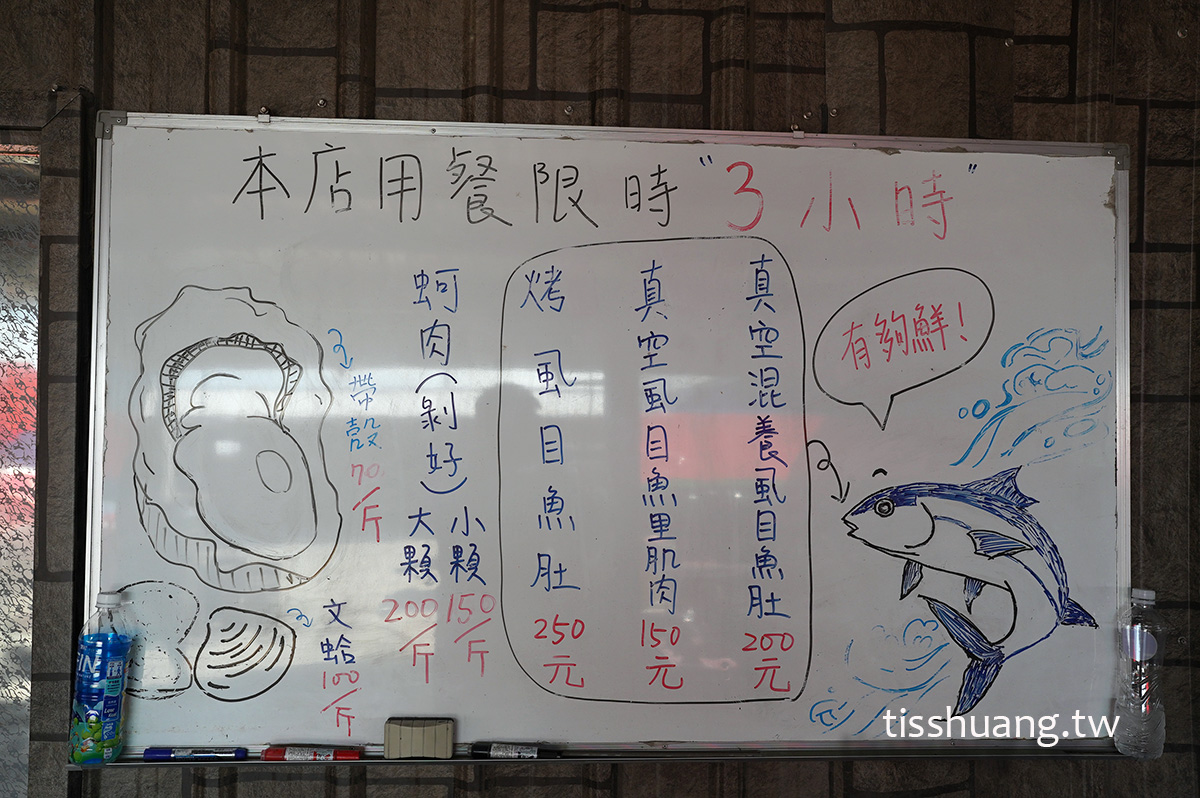 本店用餐限時"3小時"
有夠鮮!
真空混養虱目魚肚200元
真空虱目魚里肌肉150元
烤虱目魚肚250元
蚵肉(剝好)
小顆150/斤
大顆200/斤
帶殼70/斤
文蛤100/斤
FIN
tisshuang.tw